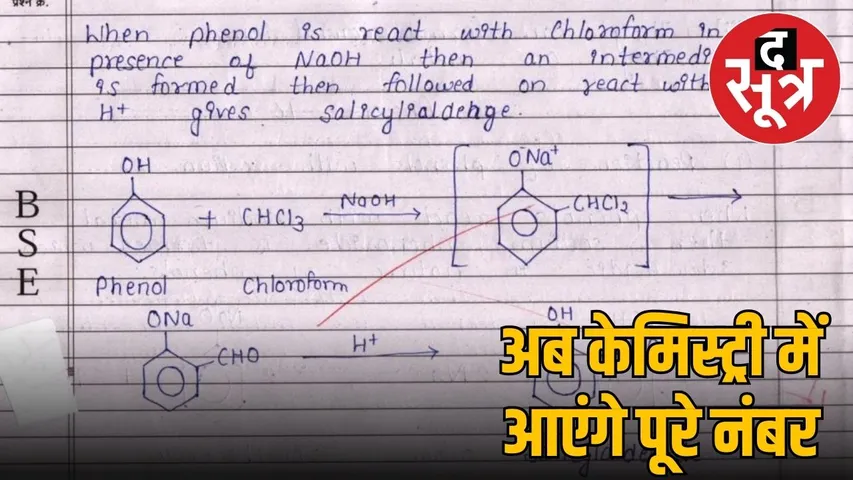 प्रश्न क्र.
When phenol is react with Chloroform in
presence of NaOH then an intermedi
is formed then followed on react with
H+ gives salicylialdehge.
द
सूत्र
OH
O⁻Na⁺
+ CHCl3 NaOH
CHCl2
B
S
E
Phenol Chloroform
ONa
CHO
H+
OH
अब केमिस्ट्री में
आएंगे पूरे नंबर